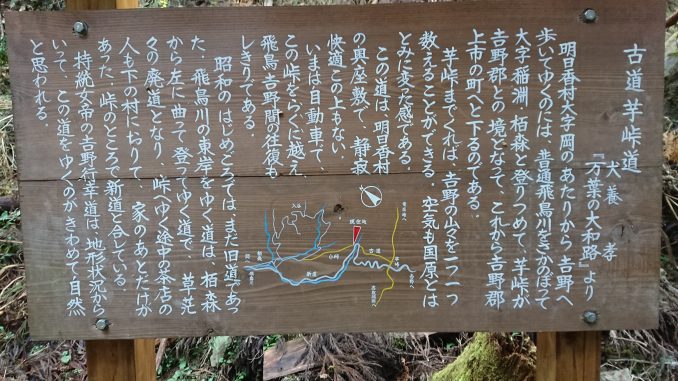 古道 芋峠道
犬養 孝
『万葉の大和路』より
明日香村大字岡のあたりから吉野へ
歩いてゆくのには、普通飛鳥川をさかのぼって
大字稲淵、栢森と登りつめて、芋峠が
吉野郡との境となって、これから吉野郡
上市の町へと下るのである。
芋峠までくれば、吉野の山々を一つ一つ
数えることができる。空気も国原とは
とみに変た感である。
この道は、明日香村
の奥座敷で、静寂
快適この上もない。
いまは自動車で、
この峠をらくに越え、
飛鳥吉野間の往復も
しきりである。
昭和のはじめころでは、まだ旧道であっ
た。飛鳥川の東岸をゆく道は、栢森
から左に曲って登ってゆく道で、草茫
々の廃道となり、峠へゆく途中の茶店の
人も下の村におりて、家のあとだけが
あった。峠のところで新道と合している。
持統女帝の吉野行幸道は、地形状況から
いて、この道をゆくのがきわめて自然
と思われる。
入谷
現在地
古道
小峠
新道
芋峠
栢森